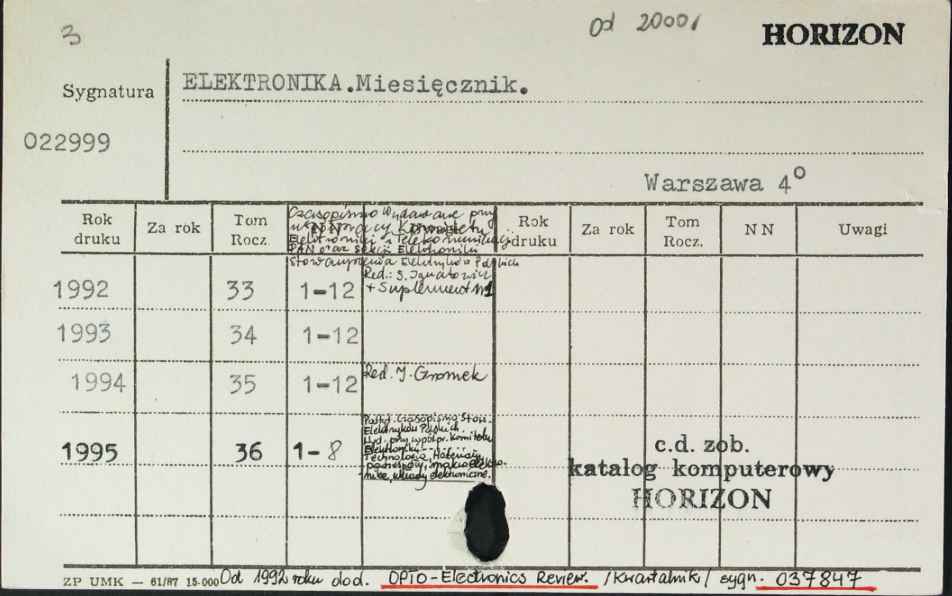 3
Od 2000
HORIZON
Sygnatura
ELEKTRONIKA.Miesięcznik.
022999
Warszawa 4°
Rok druku
Za rok
Tom Rocz.
Czasopismo Wydawane przy
współpracy Komitetu
Elektroniki i Telekomunikacji
PAN oraz Sekcji Elektroniki
Stowarzyszenia Elektryków Polskich
Rok druku
Za rok
Tom Rocz.
N N
Uwagi
1992 33 1-12 Red.: S. Ignatowicz
+ Suplement N1
1993 34 1-12
1994 35 1-12 Red. J. Gromek
1995 36 1-8
Czasopismo Stow.
Elektryków Polskich.
Wyd. przy współpr. Komitetu
Elektroniki
Technologia, Materiały,
elektroniczne.
c.d. zob.
katalog komputerowy
HORIZON
ZP UMK — 61/87 15.000 Od 1992 roku dod. OPTO-Electronics Review. /Kwartalnik/ sygn. 037847